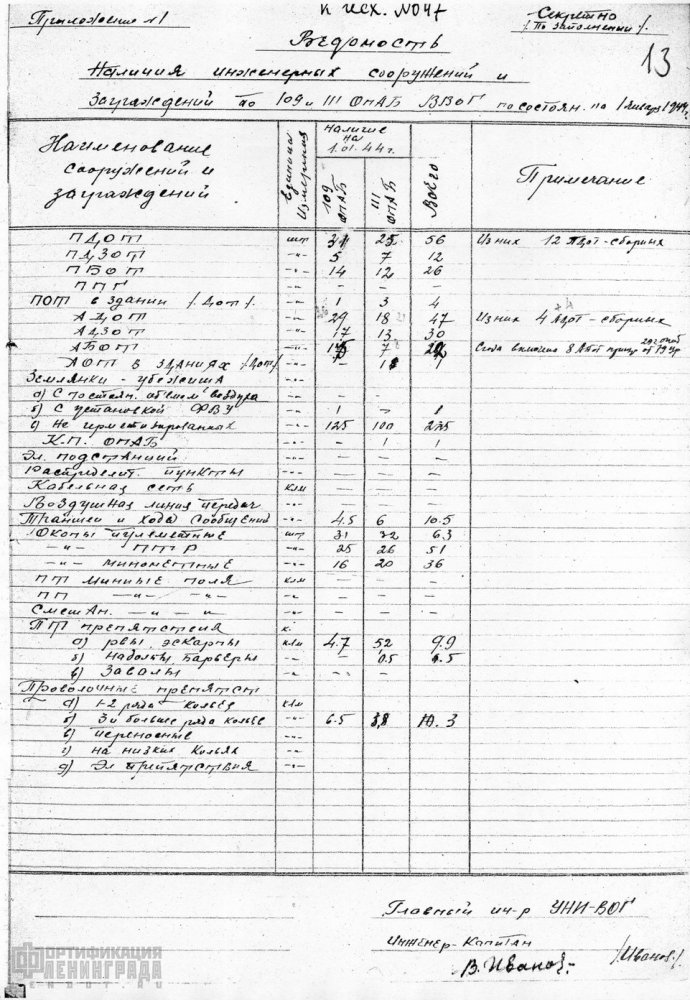 Приложение №1
к исх. №047
Секретно
/По заполнении/.
13
Ведомость
Наличия инженерных сооружений и
заграждений по 109 и 111 ОПАБ ВВОГ по состоян. на 1 января 1944г.
Наименование сооружений и заграждений | Единица измерения | наличие на 1.01.44г. 109 ОПАБ | 111 ОПАБ | Всего | Примечание
ПДОТ шт 31 25 56 Из них 12 пдот-сборных
ПДЗОТ -"- 5 7 12
ПБОТ -"- 14 12 26
ППГ -"- – – –
ПОТ в здании /Дот/. -"- 1 3 4
АДОТ -"- 29 18 47 Из них 4 Адот-сборных
АДЗОТ -"- 17 13 30
АБОТ -"- 15 7 22 Сюда включены 8 Абот
АОТ в зданиях /Дот/ -"- – 1 1
Землянки-убежища -"-
а) С постоян. об'емом воздуха -"- – –
б) С установкой ФВУ -"- 1 – 1
в) Не герметизированных -"- 125 100 225
К.П. ОПАБ -"- – 1 1
Эл. подстанций -"- – – –
Распределит. пункты -"- – – –
Кабельная сеть клм – – –
Воздушная линия передач -"- – – –
Траншеи и хода сообщений -"- 4.5 6 10.5
Окопы пулеметные шт 31 32 63
-"- ПТР -"- 25 26 51
-"- минометные -"- 16 20 36
ПТ минные поля клм – – –
ПП -"- -"- -"- – – –
Смешан. -"- -"- -"- – – –
ПТ препятствия к.
а) рвы, эскарпы клм 4.7 5,2 9.9
б) Надолбы, барьеры -"- – 0.5 0.5
в) Завалы -"- – –
Проволочные препятст
а) 1-2 ряда кольев клм
б) 3 и больше ряда колье -"- 6.5 3,8 10.3
в) переносные -"-
г) на низких кольях -"-
д) Эл препятствия -"-
Главный инж-р УНИ-ВОГ
Инженер-Капитан
В. Иванов /Иванов/.
ФОРТИФИКАЦИЯ
ЛЕНИНГРАДА